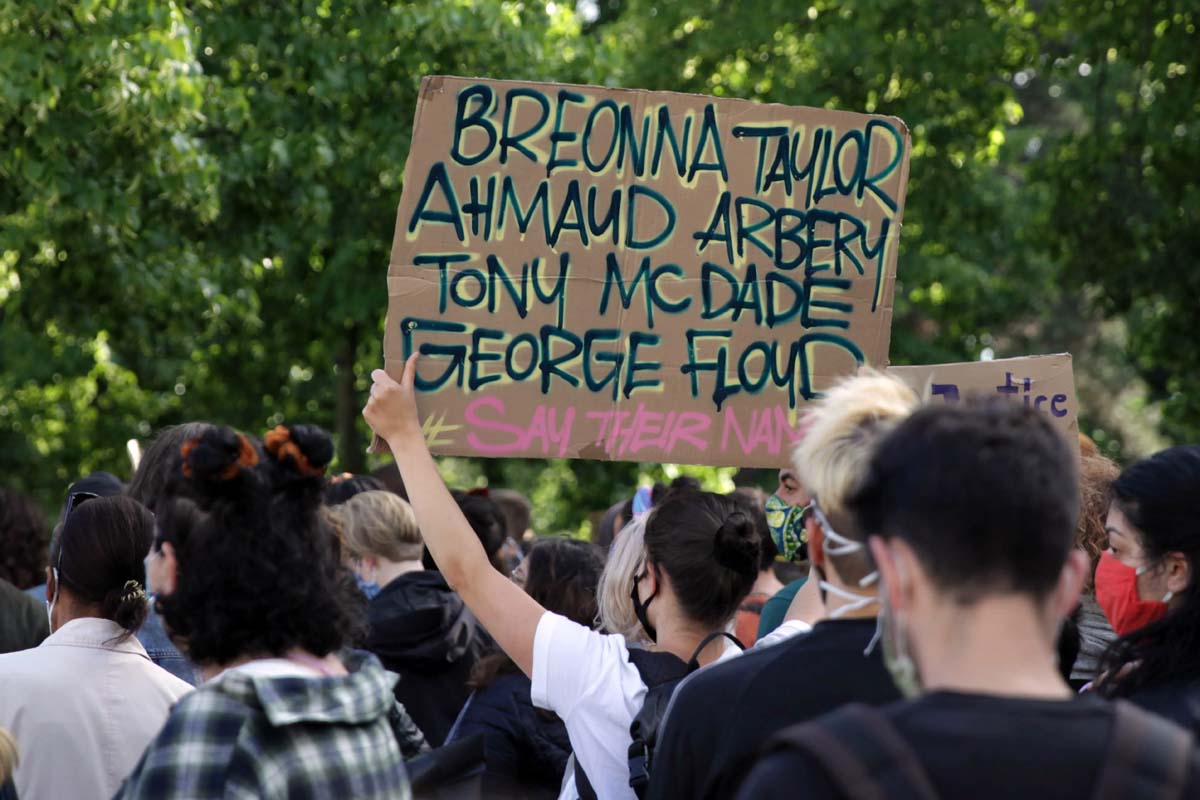 BREONNA TAYLOR
AHMAUD ARBERY
TONY MCDADE
GEORGE FLOYD
# SAY THEIR NAM